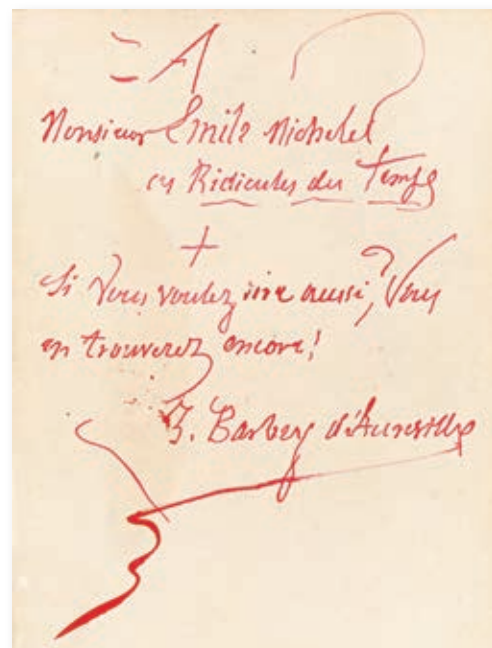 = A
Monsieur Emile Michelet
ces Ridicules du Temps
+
Si Vous voulez rire aussi, Vous
en trouverez encore!
J. Barbey d'Aurevilly